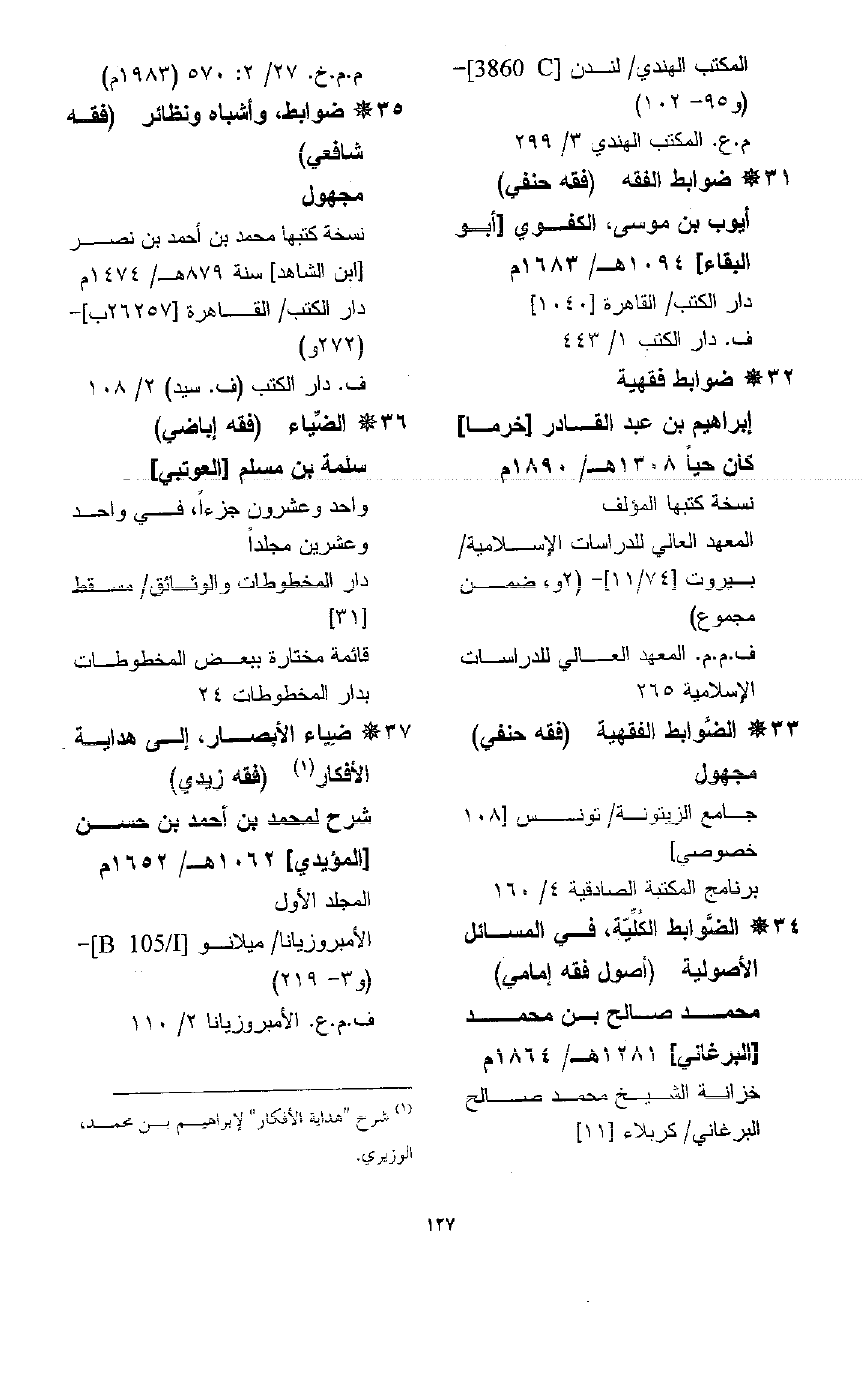 المكتب الهندي/ لندن [3860 C]-
(و٩٥- ١٠٢)
م.ع. المكتب الهندي ٣/ ٢٩٩
٣١* ضوابط الفقه (فقه حنفي)
أيوب بن موسى، الكفوي [أبو
البقاء] ١٠٩٤هـ/ ١٦٨٣م
دار الكتب/ القاهرة [١٠٤٠]
ف. دار الكتب ١/ ٤٤٣
٣٢* ضوابط فقهية
إبراهيم بن عبد القادر [خرما]
كان حياً ١٣٠٨هـ/ ١٨٩٠م
نسخة كتبها المؤلف
المعهد العالي للدراسات الإسلامية/
بيروت [١١/٧٤]- (٢و، ضمن
مجموع)
ف.م.م. المعهد العالي للدراسات
الإسلامية ٢٦٥
٣٣* الضَّوابط الفقهية (فقه حنفي)
مجهول
جامع الزيتونة/ تونس [١٠٨
خصوصي]
برنامج المكتبة الصادقية ٤/ ١٦٠
٣٤* الضَّوابط الكُلِّيّة، في المسائل
الأصولية (أصول فقه إمامي)
محمد صالح بن محمد
[البرغاني] ١٢٨١هـ/ ١٨٦٤م
خزانة الشيخ محمد صالح
البرغاني/ كربلاء [١١]
م.م.خ. ٢٧/ ٢: ٥٧٠ (١٩٨٣م)
٣٥* ضوابط، وأشباه ونظائر (فقه
شافعي)
مجهول
نسخة كتبها محمد بن أحمد بن نصر
[ابن الشاهد] سنة ٨٧٩هـ/ ١٤٧٤م
دار الكتب/ القاهرة [٢٦٢٥٧ب]-
(٢٧٢و)
ف. دار الكتب (ف. سيد) ٢/ ١٠٨
٣٦* الضِّياء (فقه إباضي)
سلمة بن مسلم [العوتبي]
واحد وعشرون جزءاً، في واحد
وعشرين مجلداً
دار المخطوطات والوثائق/ مسقط
[٣١]
قائمة مختارة ببعض المخطوطات
بدار المخطوطات ٢٤
٣٧* ضياء الأبصار، إلى هداية
الأفكار(١) (فقه زيدي)
شرح لمحمد بن أحمد بن حسن
[المؤيدي] ١٠٦٢هـ/ ١٦٥٢م
المجلد الأول
الأمبروزيانا/ ميلانو [B 105/I]-
(و٣- ٢١٩)
ف.م.ع. الأمبروزيانا ٢/ ١١٠
(١) شرح "هداية الأفكار" لإبراهيم بن محمد،
الوزيري.
١٢٧